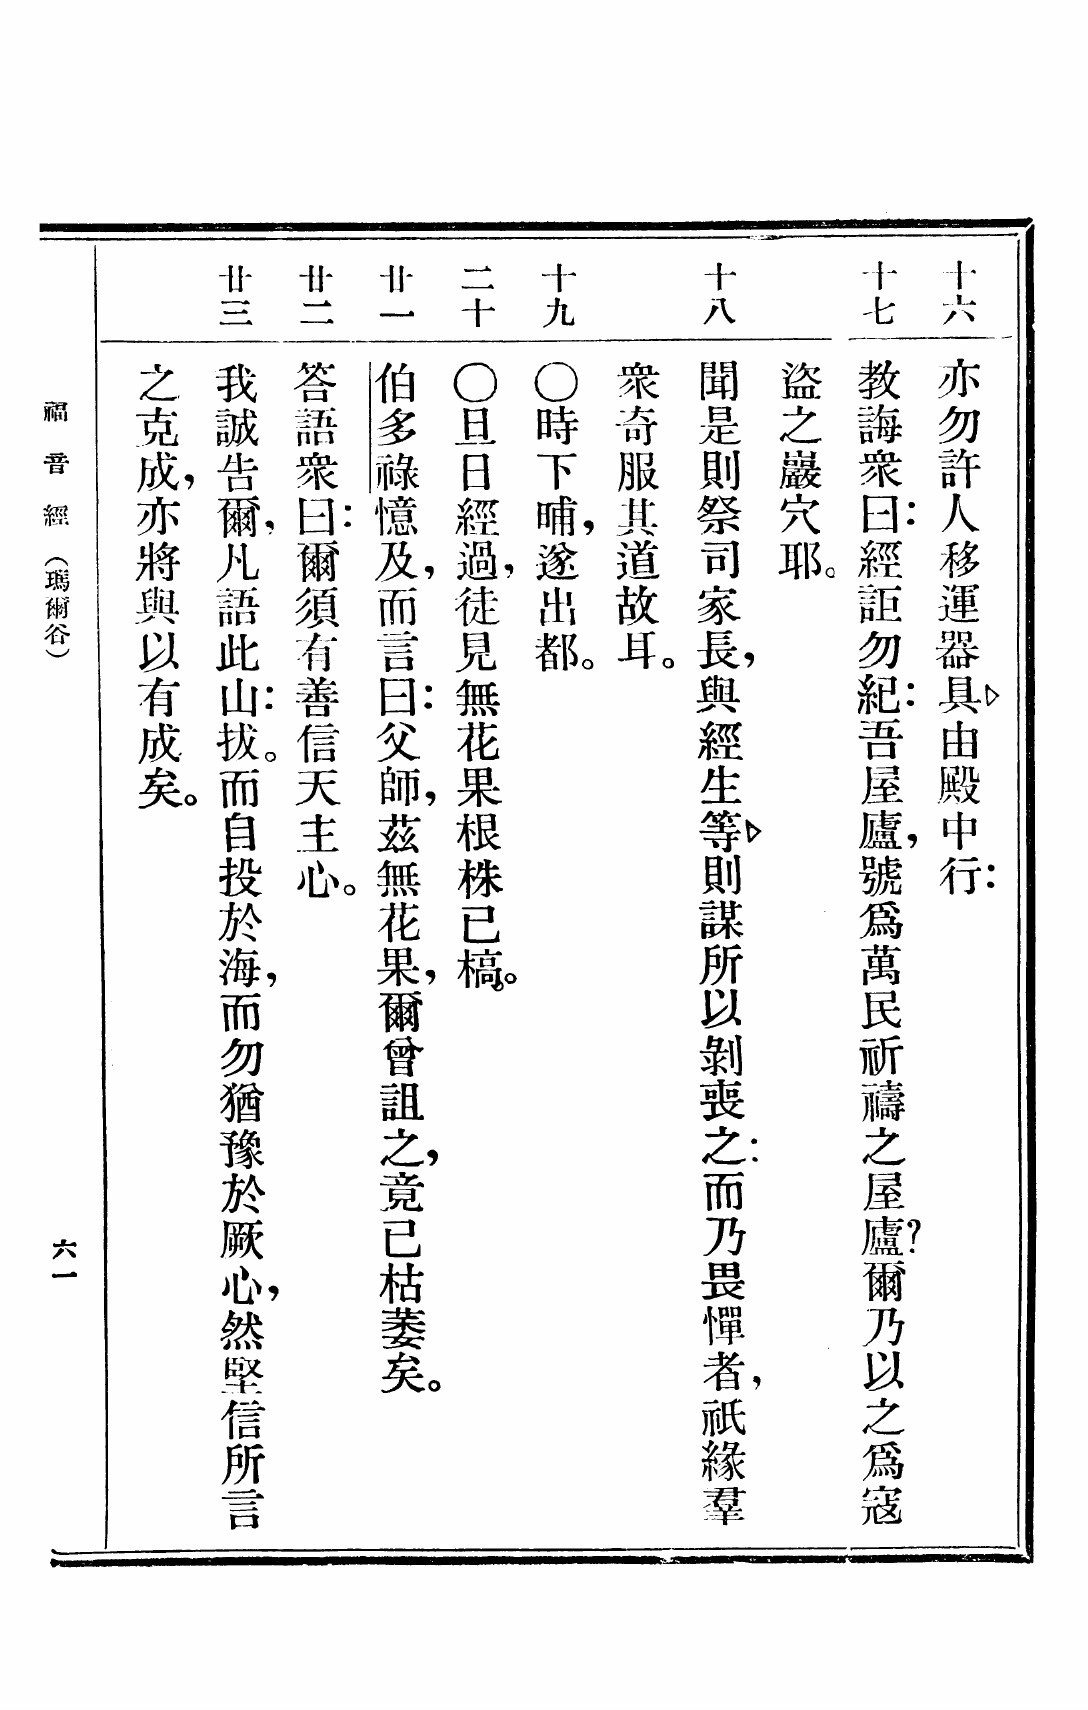 十六 亦勿許人移運器具▷由殿中行：
十七 教誨衆曰：經詎勿紀：吾屋廬，號爲萬民祈禱之屋廬？爾乃以之爲寇
盜之巖穴耶。
十八 聞是則祭司家長，與經生等▷則謀所以剝喪之：而乃畏憚者，祇緣羣
衆奇服其道故耳。
十九 〇時下晡，遂出都。
二十 〇旦日經過，徒見無花果根株已槁。
廿一 伯多祿憶及，而言曰：父師，茲無花果，爾曾詛之，竟已枯萎矣。
廿二 答語衆曰：爾須有善信天主心。
廿三 我誠告爾，凡語此山：拔。而自投於海，而勿猶豫於厥心，然堅信所言
之克成，亦將與以有成矣。
福音經（瑪爾谷）
六一